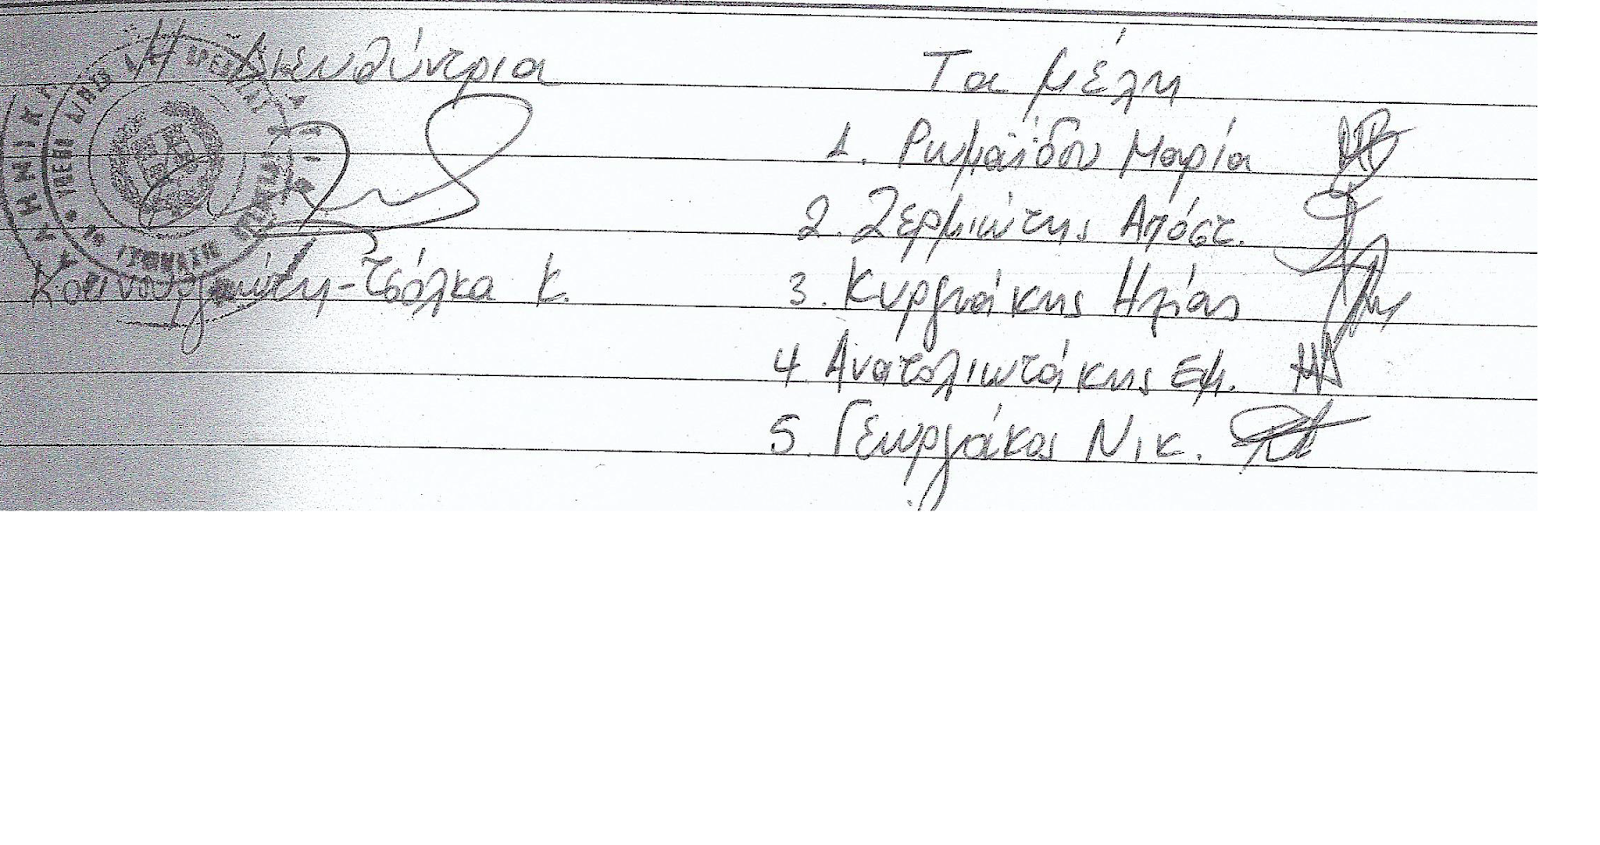 Η Διευθύντρια
Τσόλκα Κ.
Τα μέλη
1. Ρωμαΐδου Μαρία
2. Ζερμιώτης Απόστ.
3. Κυργιάκης Ηλίας
4 Ανατολιωτάκης Εμ.
5. Γεωργιάκος Νικ.